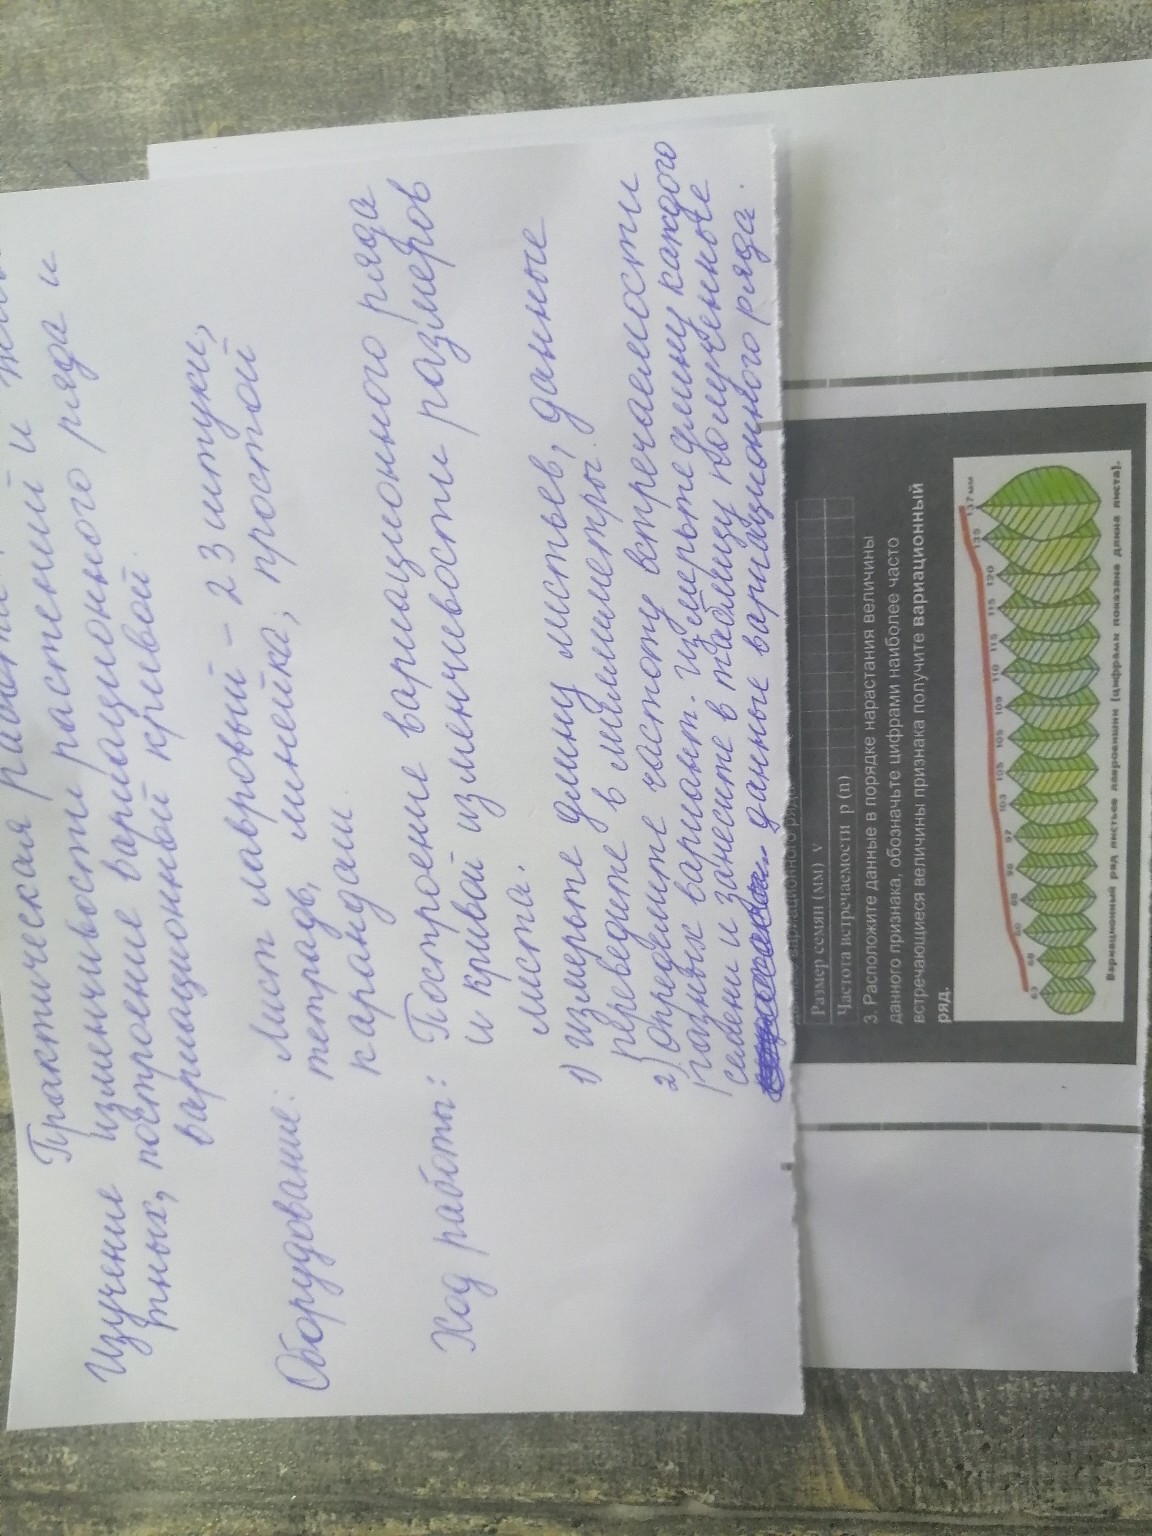 Практическая работа
Изучение изменчивости растений и
тных, построение вариационного ряда и
вариационной кривой.
Оборудование: Лист лавровый - 23 штуки,
тетрадь, линейка, простой
карандаш
Ход работы: Построение вариационного ряда
и кривой изменчивости размеров
листа.
1) измерьте длину листьев, данные
переведите в миллиметры.
2) определите частоту встречаемости
разных вариант. измерьте длину каждого
семени и занесите в таблицу полученные
данные вариационного ряда.
вариационного ряда
Размер семян (мм) v
Частота встречаемости p (n)
3. Расположите данные в порядке нарастания величины
данного признака, обозначьте цифрами наиболее часто
встречающиеся величины признака получите вариационный
ряд.
63 68 80 88 96 97 103 105 105 109 110 115 115 120 135 137 мм
Вариационный ряд листьев лавровишни (цифрами показана длина листа).